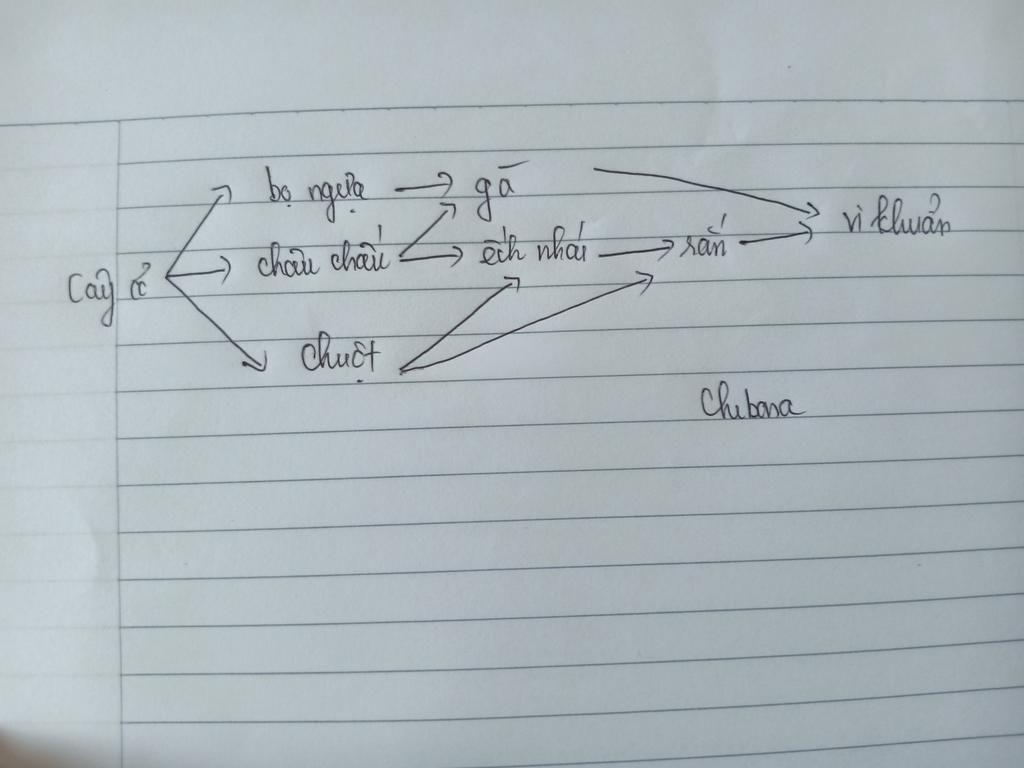 bọ ngựa → gà
Cây cỏ → châu chấu → ếch nhái → rắn → vi khuẩn
chuột
Chubana